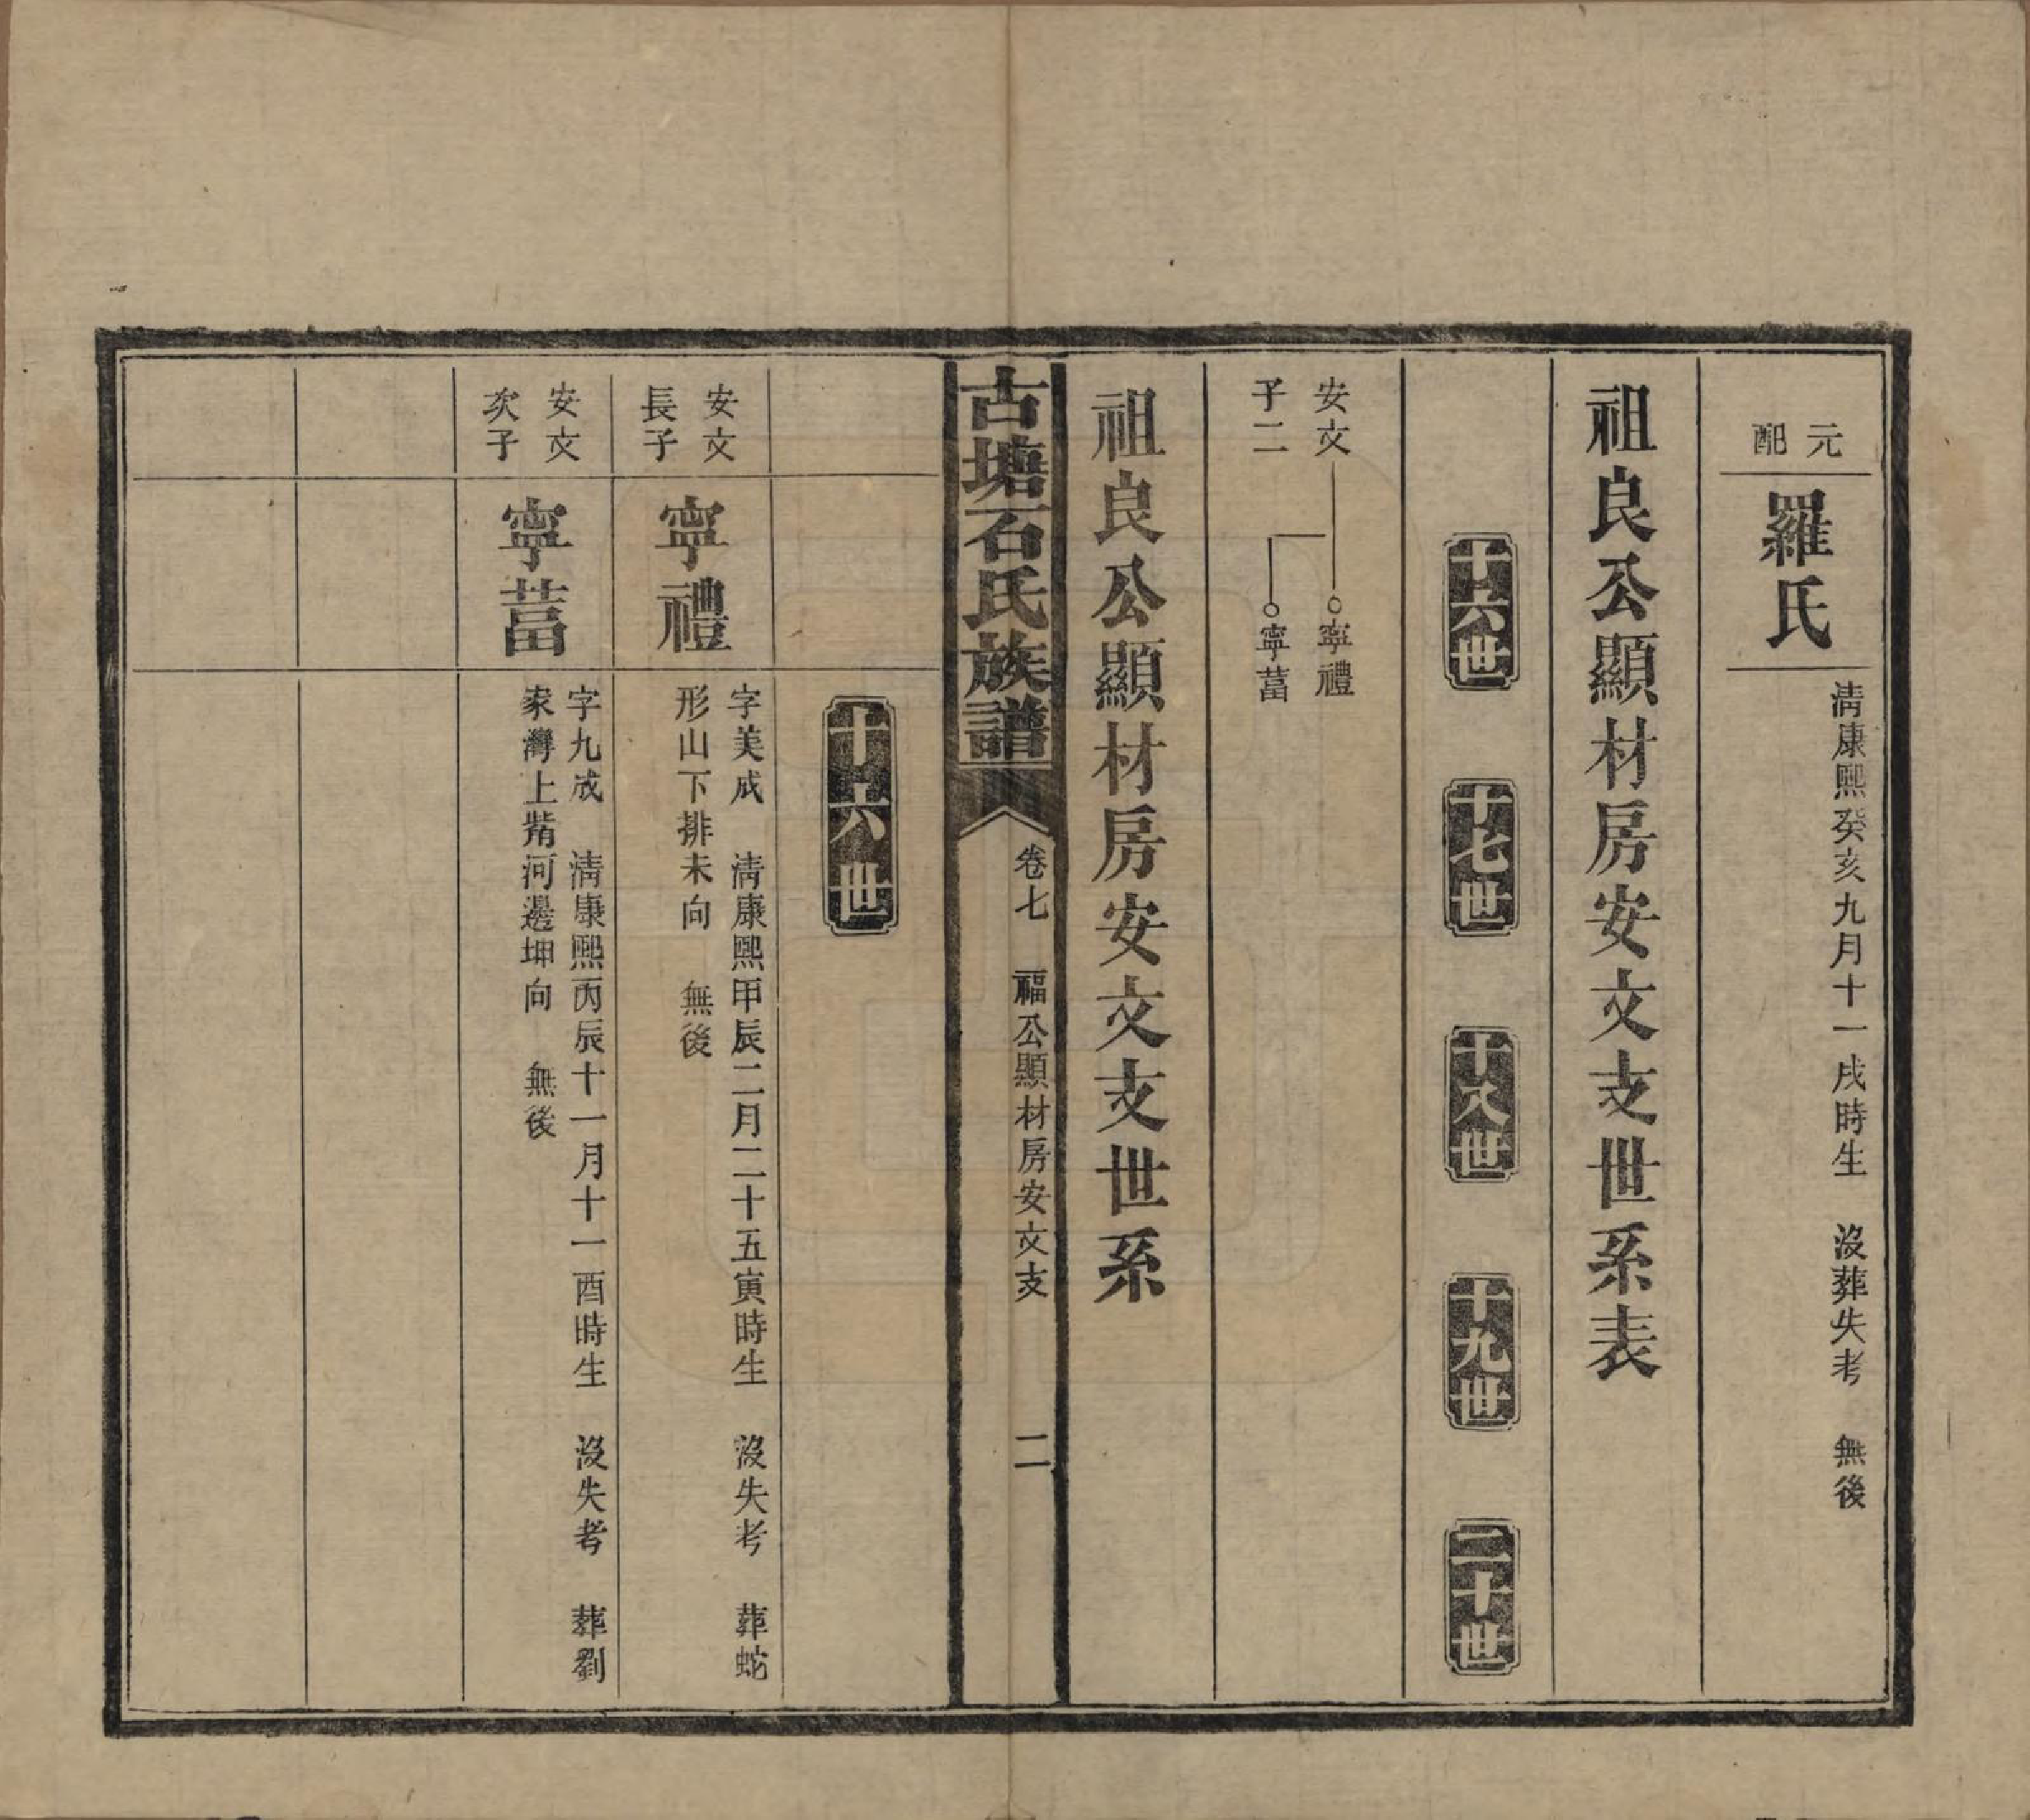 元配
羅氏
清康熙癸亥九月十一戌時生　沒葬失考　無後
祖良公顯材房安文支世系表
十六世
十七世
十八世
十九世
二十世
安文
子二
寧禮
寧葍
祖良公顯材房安文支世系
古塘石氏族譜
卷七　福公顯材房安文支　二
十六世
安文
長子
寧禮
字美成　清康熙甲辰二月二十五寅時生　沒失考　葬蛇
形山下排未向　無後
安文
次子
寧葍
字九成　清康熙丙辰十一月十一酉時生　沒失考　葬劉
家灣上觜河邊坤向　無後